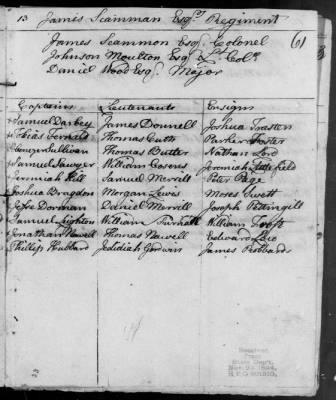 13 James Scamman Esqr. Regiment
James Scammon Esqr. Colonel (6)
Johnson Moulton Esq. Lt. Colo.
Daniel Wood Esq. Major
Captains Lieutenants Ensigns
Samuel Darbey James Donnell Joshua Trasten
Tobias Fernald Thomas Cutts Parker Foster
Sawyer Sullivan Thomas Butler Nathan Lord
Samuel Sawyer William Jeremiah Littlefield
Jeremiah Hill Samuel Merrill Peter Page
Joshua Bragdon Morgan Lewis Moses Swett
Jesse Dorman Daniel Merrill Joseph Pettingill
Samuel Leighton William William Frost
Jonathan Nowell Thomas Nowell Edward Low
Phillip Hubbard Jedidiah Goodwin James Robbards
Received
From
State Dept.